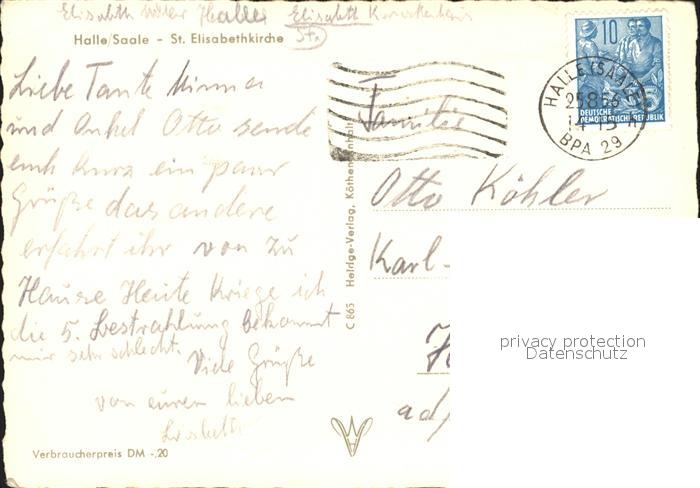 Elisabeth Halle Elisabeth Krankenhaus
Halle/Saale - St. Elisabethkirche
Liebe Tante Minna
und Onkel Otto sende
euch kurz ein paar
Grüße das andere
erfahrt ihr von zu
Hause Heute Kriege ich
die 5. Bestrahlung bekommt
mir sehr schlecht.
Viele Grüße
von euren lieben
Lisbeth
Verbraucherpreis DM -,20
C 865 Helrige-Verlag, Köthen-Anhalt
10
DEUTSCHE
DEMOKRATISCHE REPUBLIK
HALLE (SAALE)
BPA 29
Familie
Otto Köhler
Karl-
privacy protection
Datenschutz